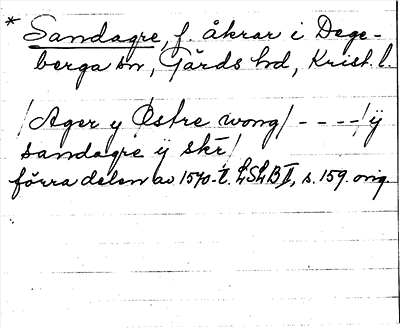 * Sandagre, f. åkrar i Dege-
berga sn, Gärds hd, Krist. l.
/Ager y Østre wong/ - - - -/ ij
sandagre ij skr/
förra delen av 1570-t. LSLB II, s. 159. orig